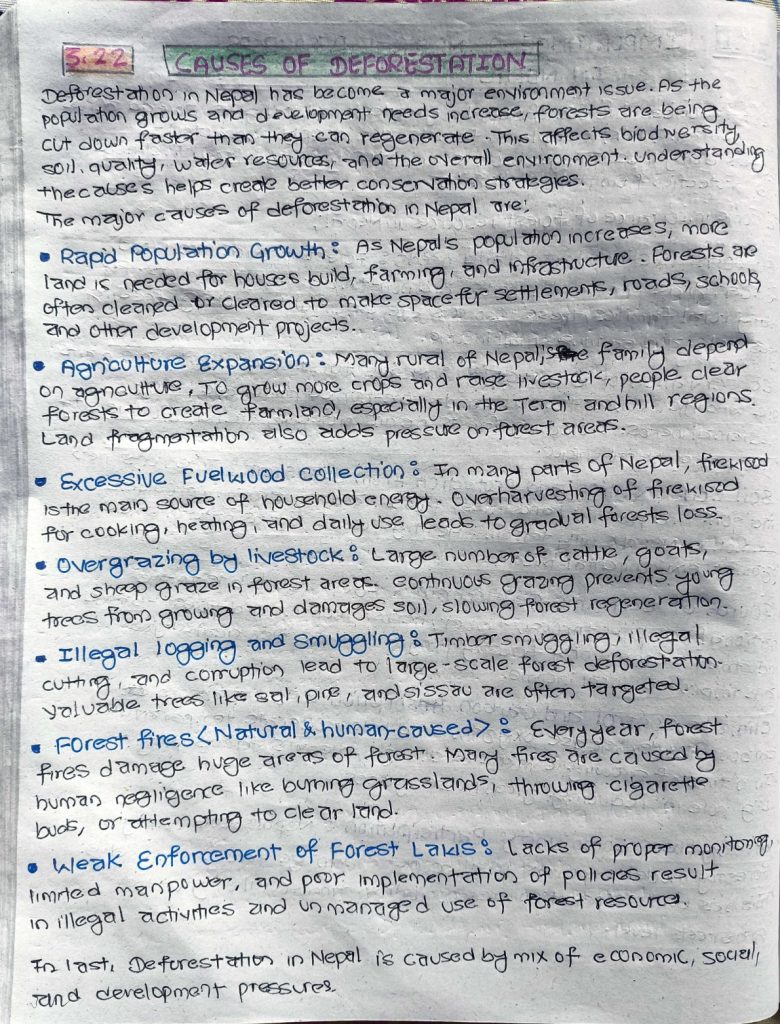 3.22 CAUSES OF DEFORESTATION
Deforestation in Nepal has become a major environment issue. As the
population grows and development needs increase, forests are being
cut down faster than they can regenerate. This affects biodiversity,
soil, quality, water resources, and the overall environment. understanding
the causes helps create better conservation strategies.
The major causes of deforestation in Nepal are;
• Rapid Population Growth: As Nepal's population increases, more
land is needed for houses build, farming, and infrastructure. Forests are
often cleaned or cleared to make space for settlements, roads, schools,
and other development projects.
• Agriculture Expansion: Many rural of Nepal's family depend
on agriculture, To grow more crops and raise livestock, people clear
forests to create farmland, especially in the Terai and hill regions.
Land fragmentation also adds pressure on forest areas.
• Excessive Fuelwood collection: In many parts of Nepal, firewood
is the main source of household energy. Overharvesting of firewood
for cooking, heating, and daily use leads to gradual forests loss.
• Overgrazing by livestock: Large number of cattle, goats,
and sheep graze in forest areas. continuous grazing prevents young
trees from growing and damages soil, slowing forest regeneration.
• Illegal logging and smuggling: Timber smuggling, illegal
cutting, and corruption lead to large-scale forest deforestation.
valuable trees like sal, pine, and sissau are often targeted.
• Forest fires <Natural & human-caused>: Every year, forest
fires damage huge areas of forest. Many fires are caused by
human negligence like burning grasslands, throwing cigarette
buds, or attempting to clear land.
• Weak Enforcement of Forest Laws: Lacks of proper monitoring,
limited manpower, and poor implementation of policies result
in illegal activities and unmanaged use of forest resource.
In last, Deforestation in Nepal is caused by mix of economic, social,
and development pressures.